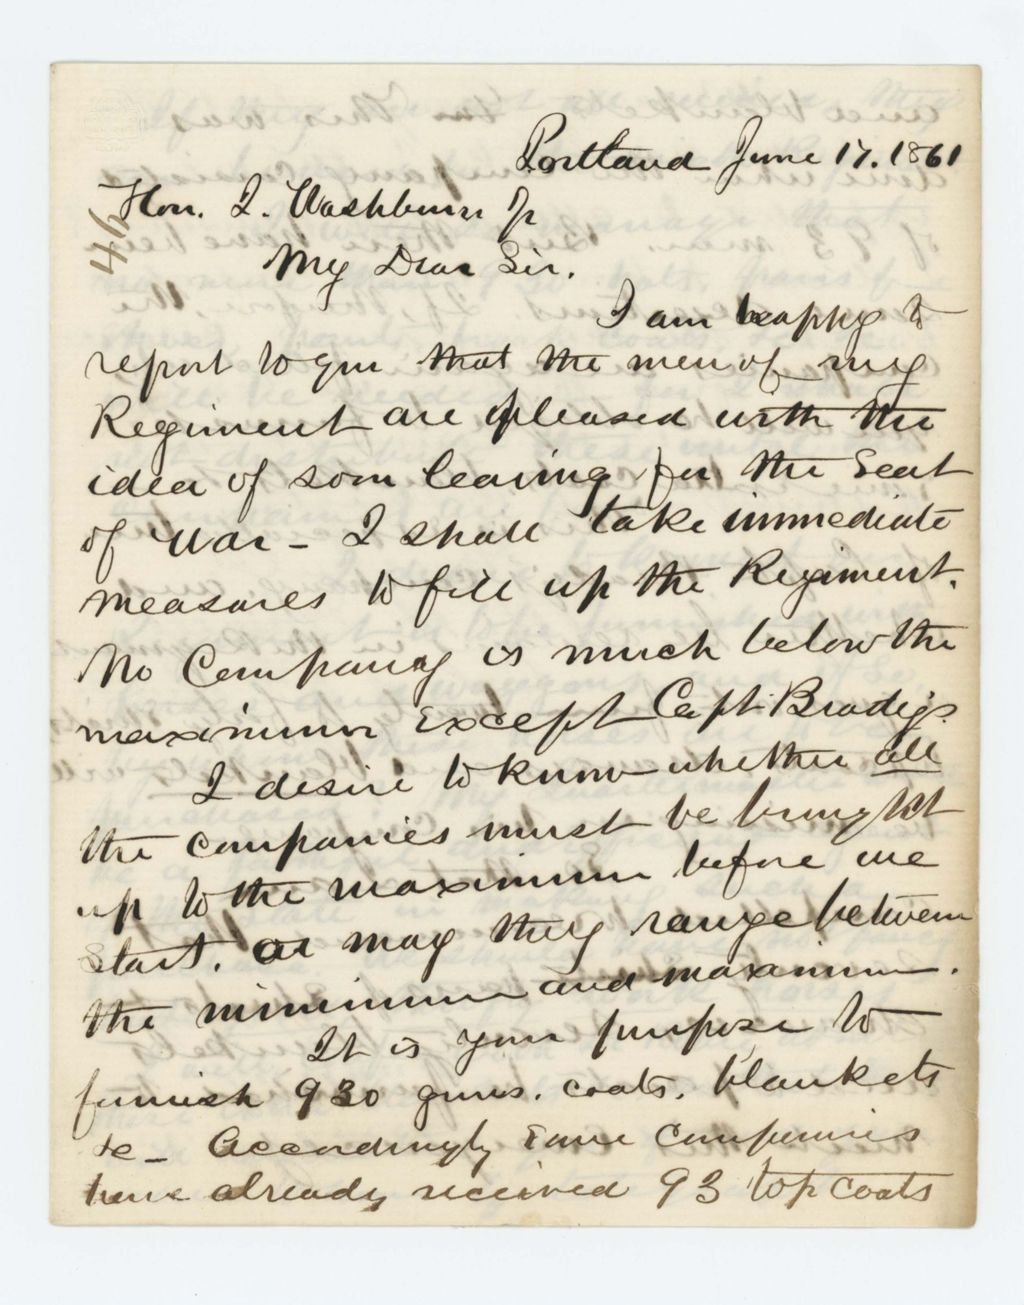 Portland June 17. 1861
Hon. I. Washburn Jr
46
My Dear Sir.
I am happy to
report to you that the men of my
Regiment are pleased with the
idea of soon leaving for the Seat
of War – I shall take immediate
measures to fill up the Regiment.
No Company is much below the
maximum except Capt. Bradys.
I desire to know whether all
the companies must be brought
up to the maximum before we
start, or may they range between
the minimum and maximum.
It is your purpose to
furnish 930 guns. coats. blankets
&c – Accordingly some companies
have already received 93 top coats